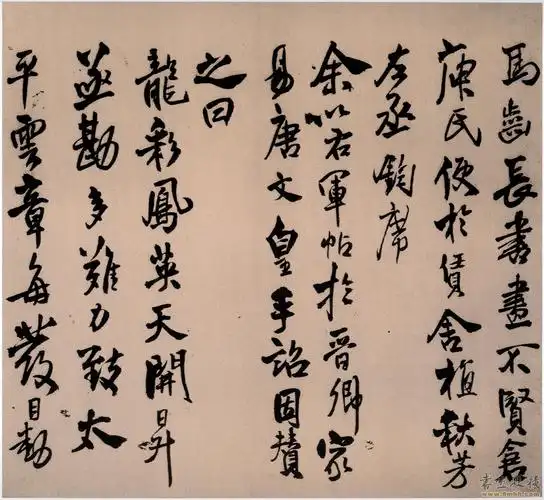 馬齒長書畫不賢倉
庾氏便於賃舍植芳
左丞鈞席
余以右軍帖於晉卿家
易唐文皇手詔因贊
之曰
龍彩鳳英天開昇
勘多難力致太
平雲章每發目動